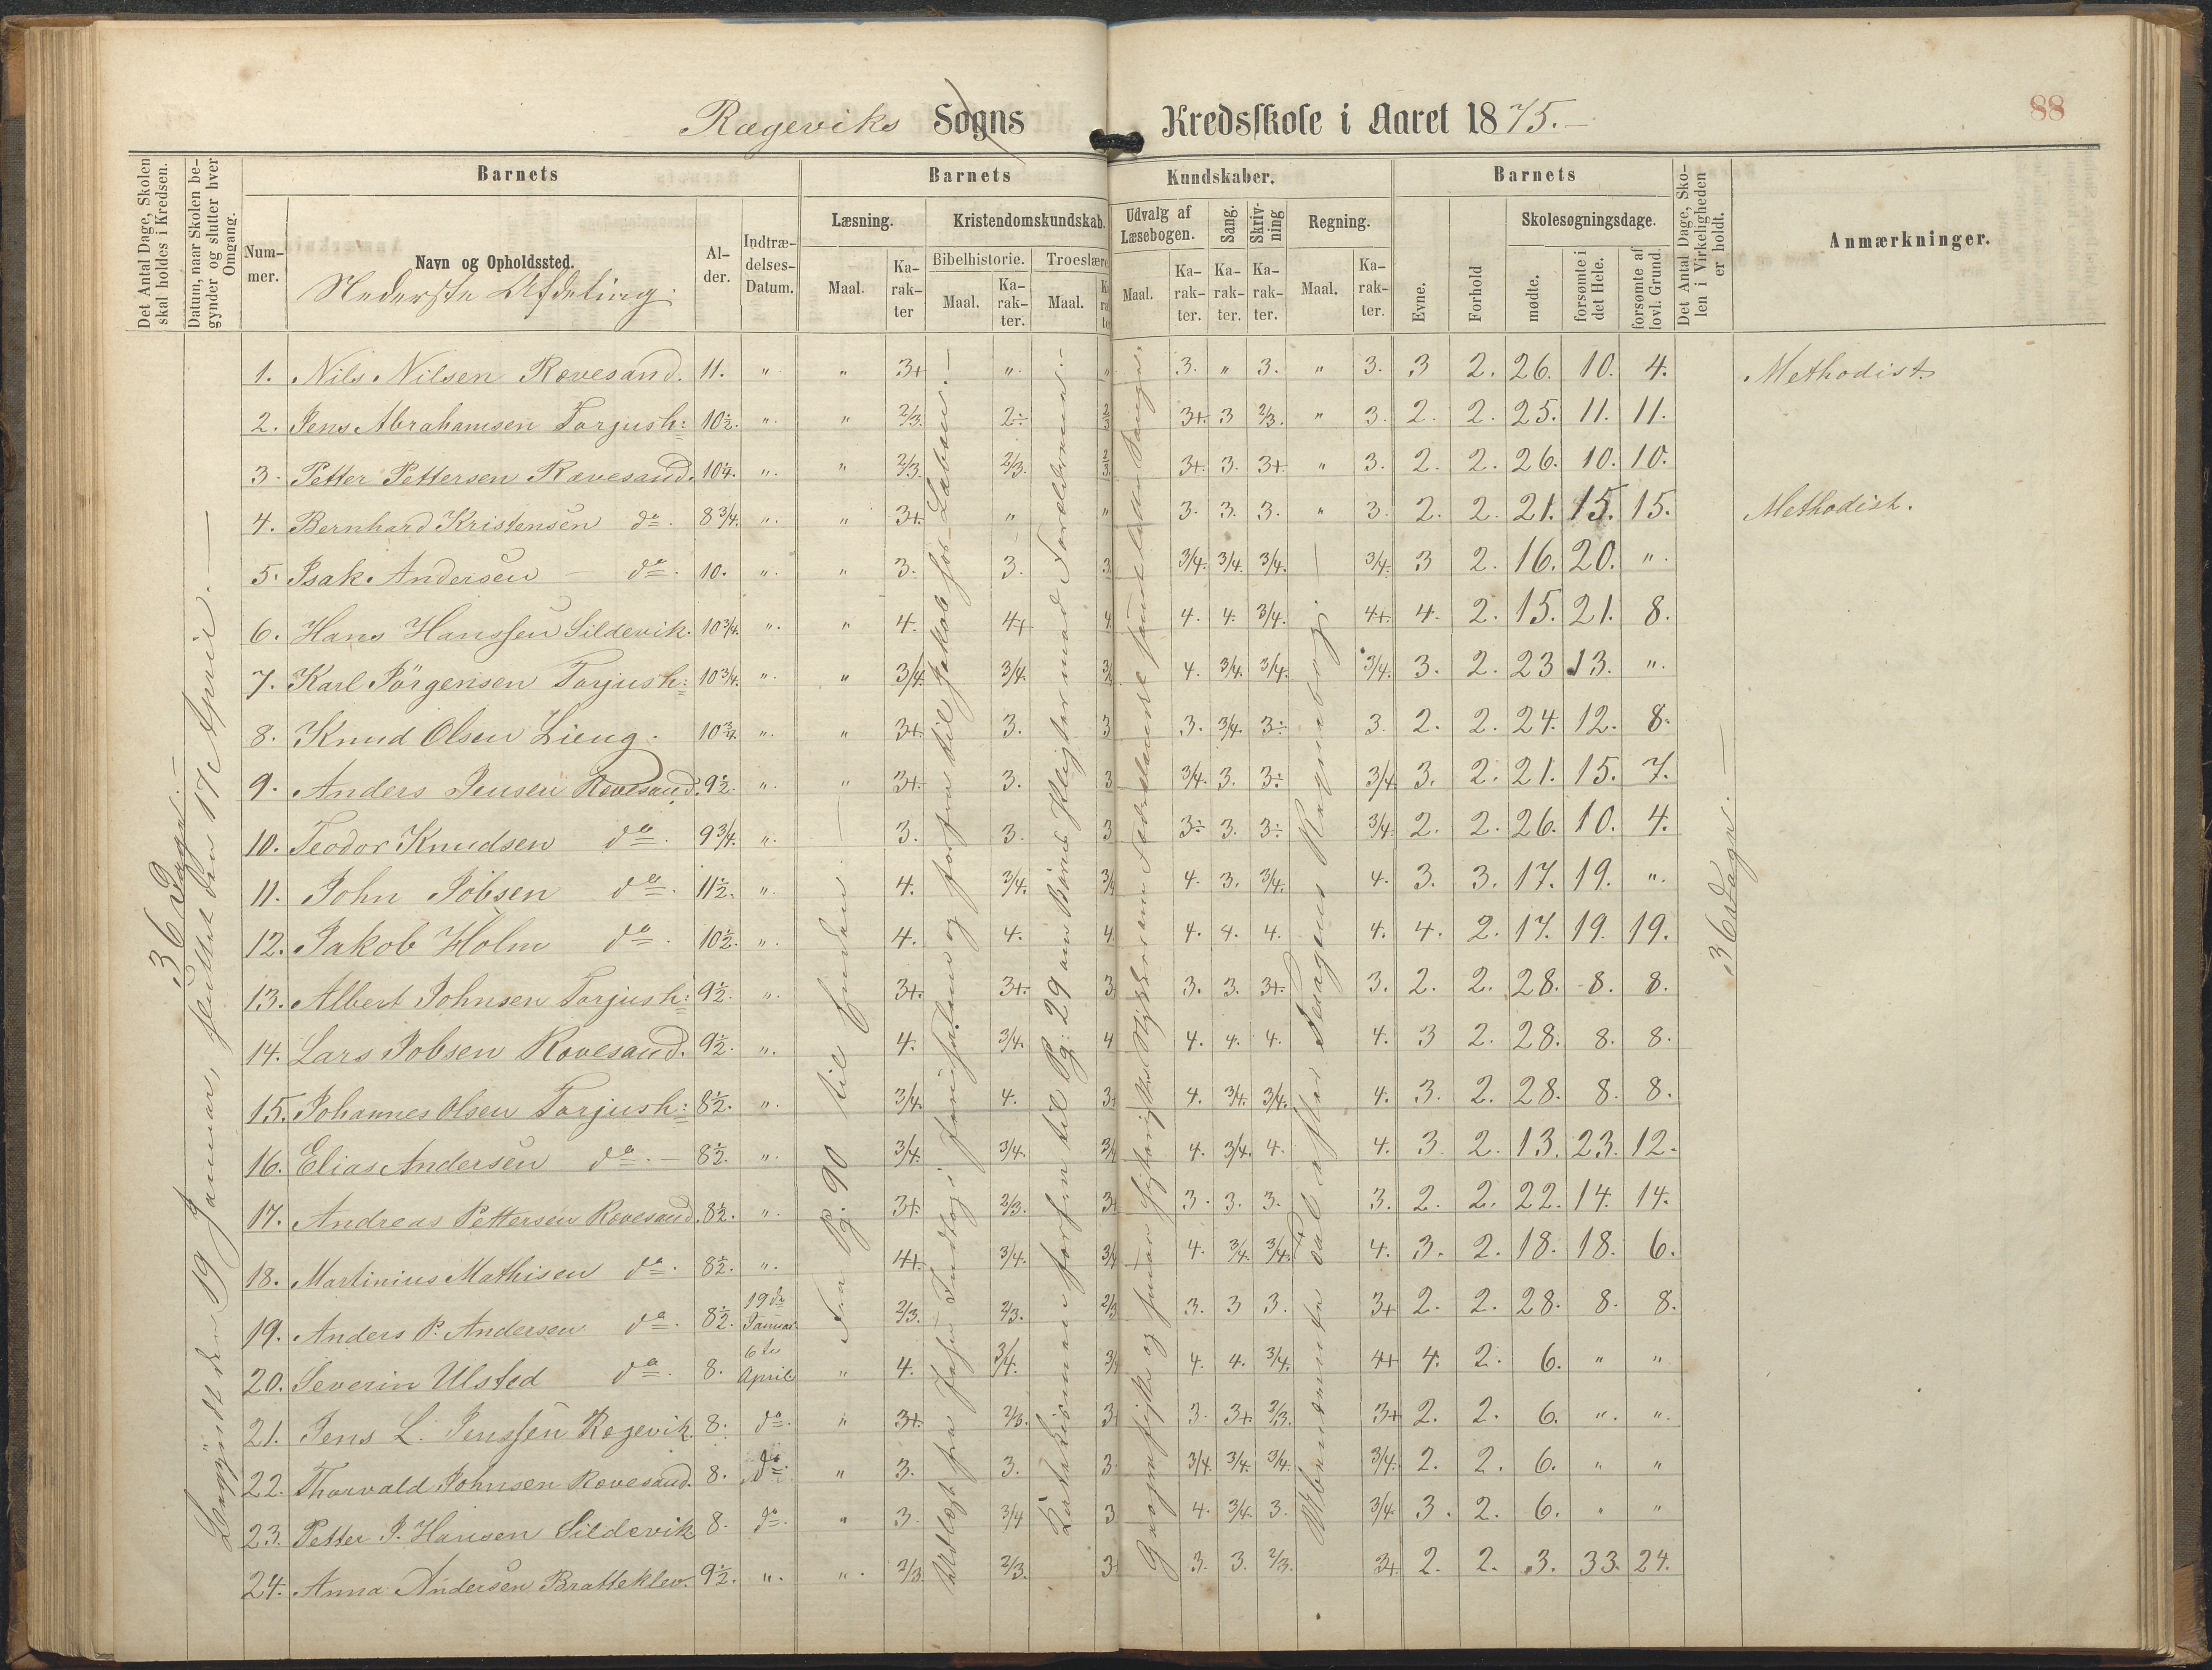 88
Rægeviks Sogns Kredsskole i Aaret 1875.
Det Antal Dage, Skolen skal holdes i Kredsen.
Datum, naar Skolen begynder og slutter hver Omgang.
Barnets
Nummer.
Navn og Opholdssted.
Nederste Afdeling.
Alder.
Indtrædelses-Datum.
Barnets Kundskaber.
Læsning.
Maal.
Karakter
Kristendomskundskab.
Bibelhistorie.
Maal.
Karakter.
Troeslære
Maal.
Udvalg af Læsebogen.
Maal.
Karakter.
Sang.
Karakter.
Skrivning
Karakter.
Regning.
Maal.
Karakter.
Barnets
Evne.
Forhold
Skolesøgningsdage.
mødte.
forsømte i det Hele.
forsømte af lovl. Grund.
Det Antal Dage, Skolen i Virkeligheden er holdt.
Anmærkninger.
36 Dage.
Begyndt den 19 Januar, sluttet den 17 April.
Fra Pg. 90 til Enden.
til Pg: 29
36 Dage.
1. Nils Nilsen Rævesand. 11. " " 3+ " " 3. " 3. " 3. 3 2. 26. 10. 4. Methodist
2. Jens Abrahamsen Torjush: 10½. " " 2/3. 2÷ 2/3 3+ 3 2/3. " 3. 2. 2. 25. 11. 11.
3. Petter Pettersen Rævesand. 10¼. " " 2/3. 2/3. 2/3 3+. 3. 3+ " 3. 2. 2. 26. 10. 10.
4. Bernhard Kristensen do. 8¾. " " 3+. " " 3. 3. 3. " 3. 2. 2. 21. 15. 15. Methodist.
5. Isak Andersen – do. 10. " " 3. 3. 3 3/4. 3/4. 3/4. 3/4. 3 2. 16. 20. "
6. Hans Hanssen Sildevik. 10¾. " " 4. 4+. 4 4. 4. 3/4. 4+. 4. 2. 15. 21. 8.
7. Karl Jörgensen Torjush: 10¾. " " 3/4. 3/4. 4. 3/4. 3/4. 3/4. 3. 2. 23 13. "
8. Knud Olsen Lieng. 10¾. " " 3+. 3. 3 3. 3/4. 3÷ 3. 2. 2. 24. 12. 8.
9. Anders Jensen Rævesand. 9½. " " 3+. 3. 3 3/4. 3. 3÷ 3/4. 3. 2. 21. 15. 7.
10. Teodor Knudsen do. 9¾. " 3. 3. 3 3÷ 3. 3÷ 3/4. 2. 2. 26. 10. 4.
11. John Jobsen do. 11½. " 4. 3/4. 3/4 4. 3. 3/4. 4. 3. 3. 17. 19. "
12. Jakob Holm do. 10½. " 4. 4. 4. 4. 4. 4. 4. 4. 2. 17. 19. 19.
13. Albert Johnsen Torjush: 9½. " 3+. 3+. 3 3. 3. 3+. 3. 2. 2. 28. 8. 8.
14. Lars Jobsen Rævesand. 9½. " 4. 3/4. 4 4. 4. 4. 4. 3 2. 28. 8. 8.
15. Johannes Olsen Torjush: 8½. " 3/4. 4. 3+ 4. 3/4. 3/4. 4. 3. 2. 28. 8. 8.
16. Elias Andersen do. – 8½. " 3/4. 3/4. 3/4 4. 3/4. 4. 4. 3. 2. 13. 23. 12.
17. Andreas Pettersen Rævesand. 8½. " 3+. 2/3. 3+ 3. 3. 3. 3. 2. 2. 22. 14. 14.
18. Martinius Mathisen do. 8½. " 4+. 3/4. 3/4 4. 3/4. 3/4. 4. 3. 2. 18. 18. 6.
19. Anders P. Andersen do. 8½. 19de Januar. 2/3. 2/3. 2/3 3. 3 3. 3+ 2. 2. 28. 8. 8.
20. Severin Ulsted do. 8. 6te April " 4. 3/4. 3/4 4. 4. 3/4. 4+ 4. 2. 6. " "
21. Jens L. Jenssen Rægevik. 8. do. " 3+. 2/3. 3+ 3. 3+. 2/3. 3+ 2. 2. 6. " "
22. Thorvald Johnsen Rævesand. 8. do. " 3. 3. 3 3/4. 3/4. 3/4. 3/4. 2. 2. 6. " "
23. Petter J. Hansen Sildevik 8. do. " 3. 3/4 3 4. 3/4. 3. 3/4. 3. 2. 6. " "
24. Anna Andersen Bratteklev. 9½. " " 2/3. 2/3. 3+ 3. 3. 2/3. 3+. 2. 2. 3. 33. 24.